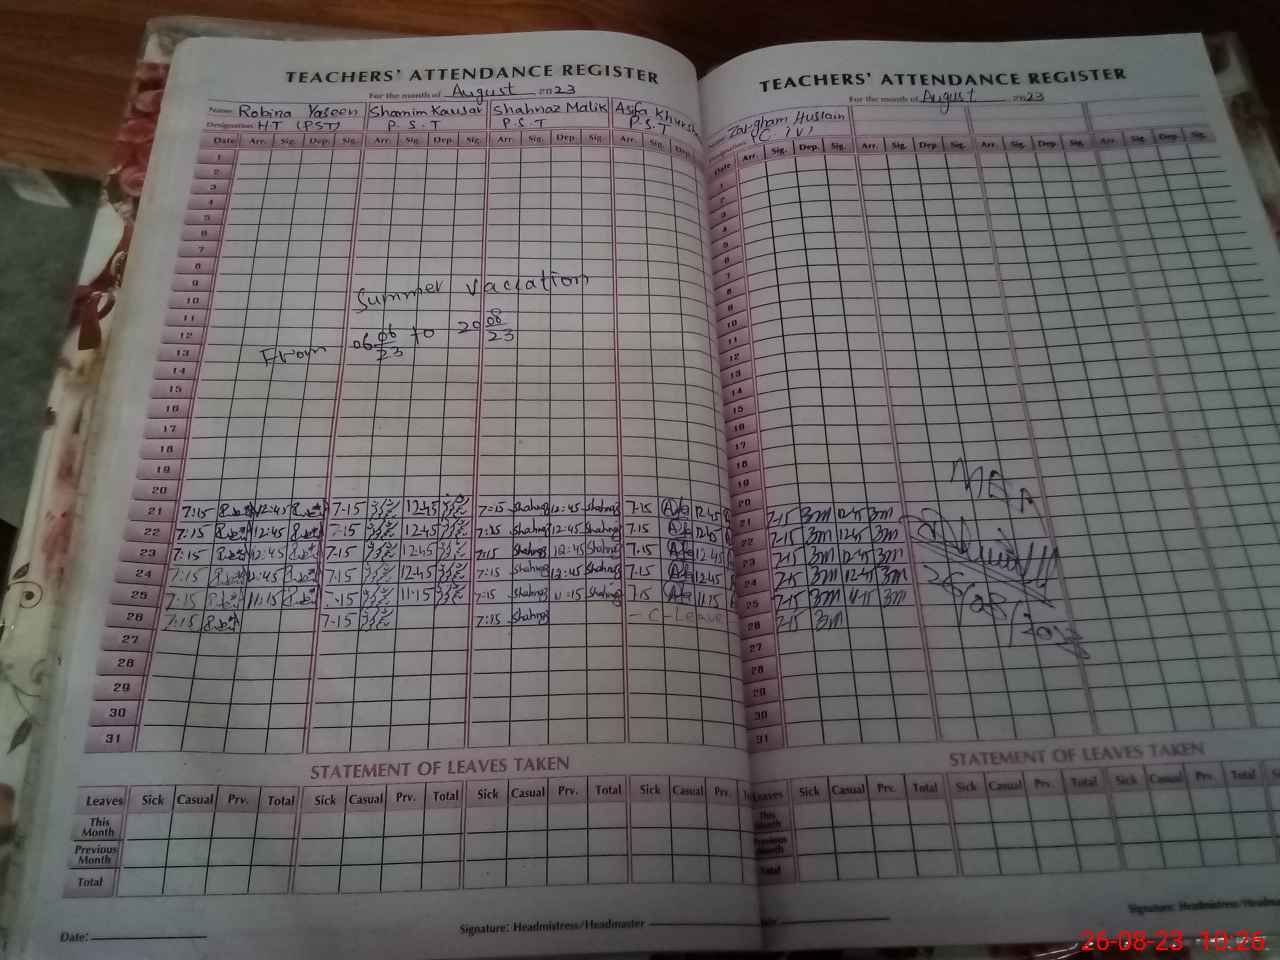 TEACHERS' ATTENDANCE REGISTER
For the month of August 2023
Name: Robina Yaseen Shamim Kausar Shahnaz Malik Asfa Khursh
Designation: HT (PST) P.S.T P.S.T P.S.T
Date Arr. Sig. Dep. Sig. Arr. Sig. Dep. Sig. Arr. Sig. Dep. Sig. Arr. Sig. Dep
1
2
3
4
5
6
7
8
9
Summer Vacation
10
11
12
From 06 06/23 to 20 08/23
13
14
15
16
17
18
19
20
21 7:15 12:45 7-15 12-45 7:15 Shahnaz 12:45 Shahnaz 7.15 Asfa 12.45
22 7:15 12:45 7:15 12.45 7:15 Shahnaz 12:45 Shahnaz 7.15 Asfa 12.45
23 7:15 12:45 7-15 12.45 7:15 Shahnaz 12:45 Shahnaz 7.15 Asfa 12.45
24 7:15 12:45 7.15 12.45 7:15 Shahnaz 12:45 Shahnaz 7.15 Asfa 12.45
25 7.15 11:15 7.15 11-15 7:15 Shahnaz 11:15 Shahnaz 7.15 Asfa 11.15
26 7:15 7-15 7:15 Shahnaz - C-Leave
27
28
29
30
31
STATEMENT OF LEAVES TAKEN
Leaves Sick Casual Prv. Total Sick Casual Prv. Total Sick Casual Prv. Total Sick Casual Prv.
This Month
Previous Month
Total
Date:
Signature: Headmistress/Headmaster
TEACHERS' ATTENDANCE REGISTER
For the month of August 2023
Zargham Hussain
C. (V)
Date Arr. Sig. Dep. Sig. Arr. Sig. Dep. Sig. Arr. Sig. Dep. Sig. Arr. Sig. Dep. Sig.
1
2
3
4
5
6
7
8
9
10
11
12
13
14
15
16
17
18
19
20
21 7-15 12-45
22 7-15 12-45
23 7-15 12-45
24 7-15 12-45
25 7-15 11-15
26 7-15
26/08/2023
27
28
29
30
31
STATEMENT OF LEAVES TAKEN
Leaves Sick Casual Prv. Total Sick Casual Prv. Total Sick Casual Prv. Total
This Month
Previous Month
Total
Signature: Headmistress/Headma
26-08-23 10:26